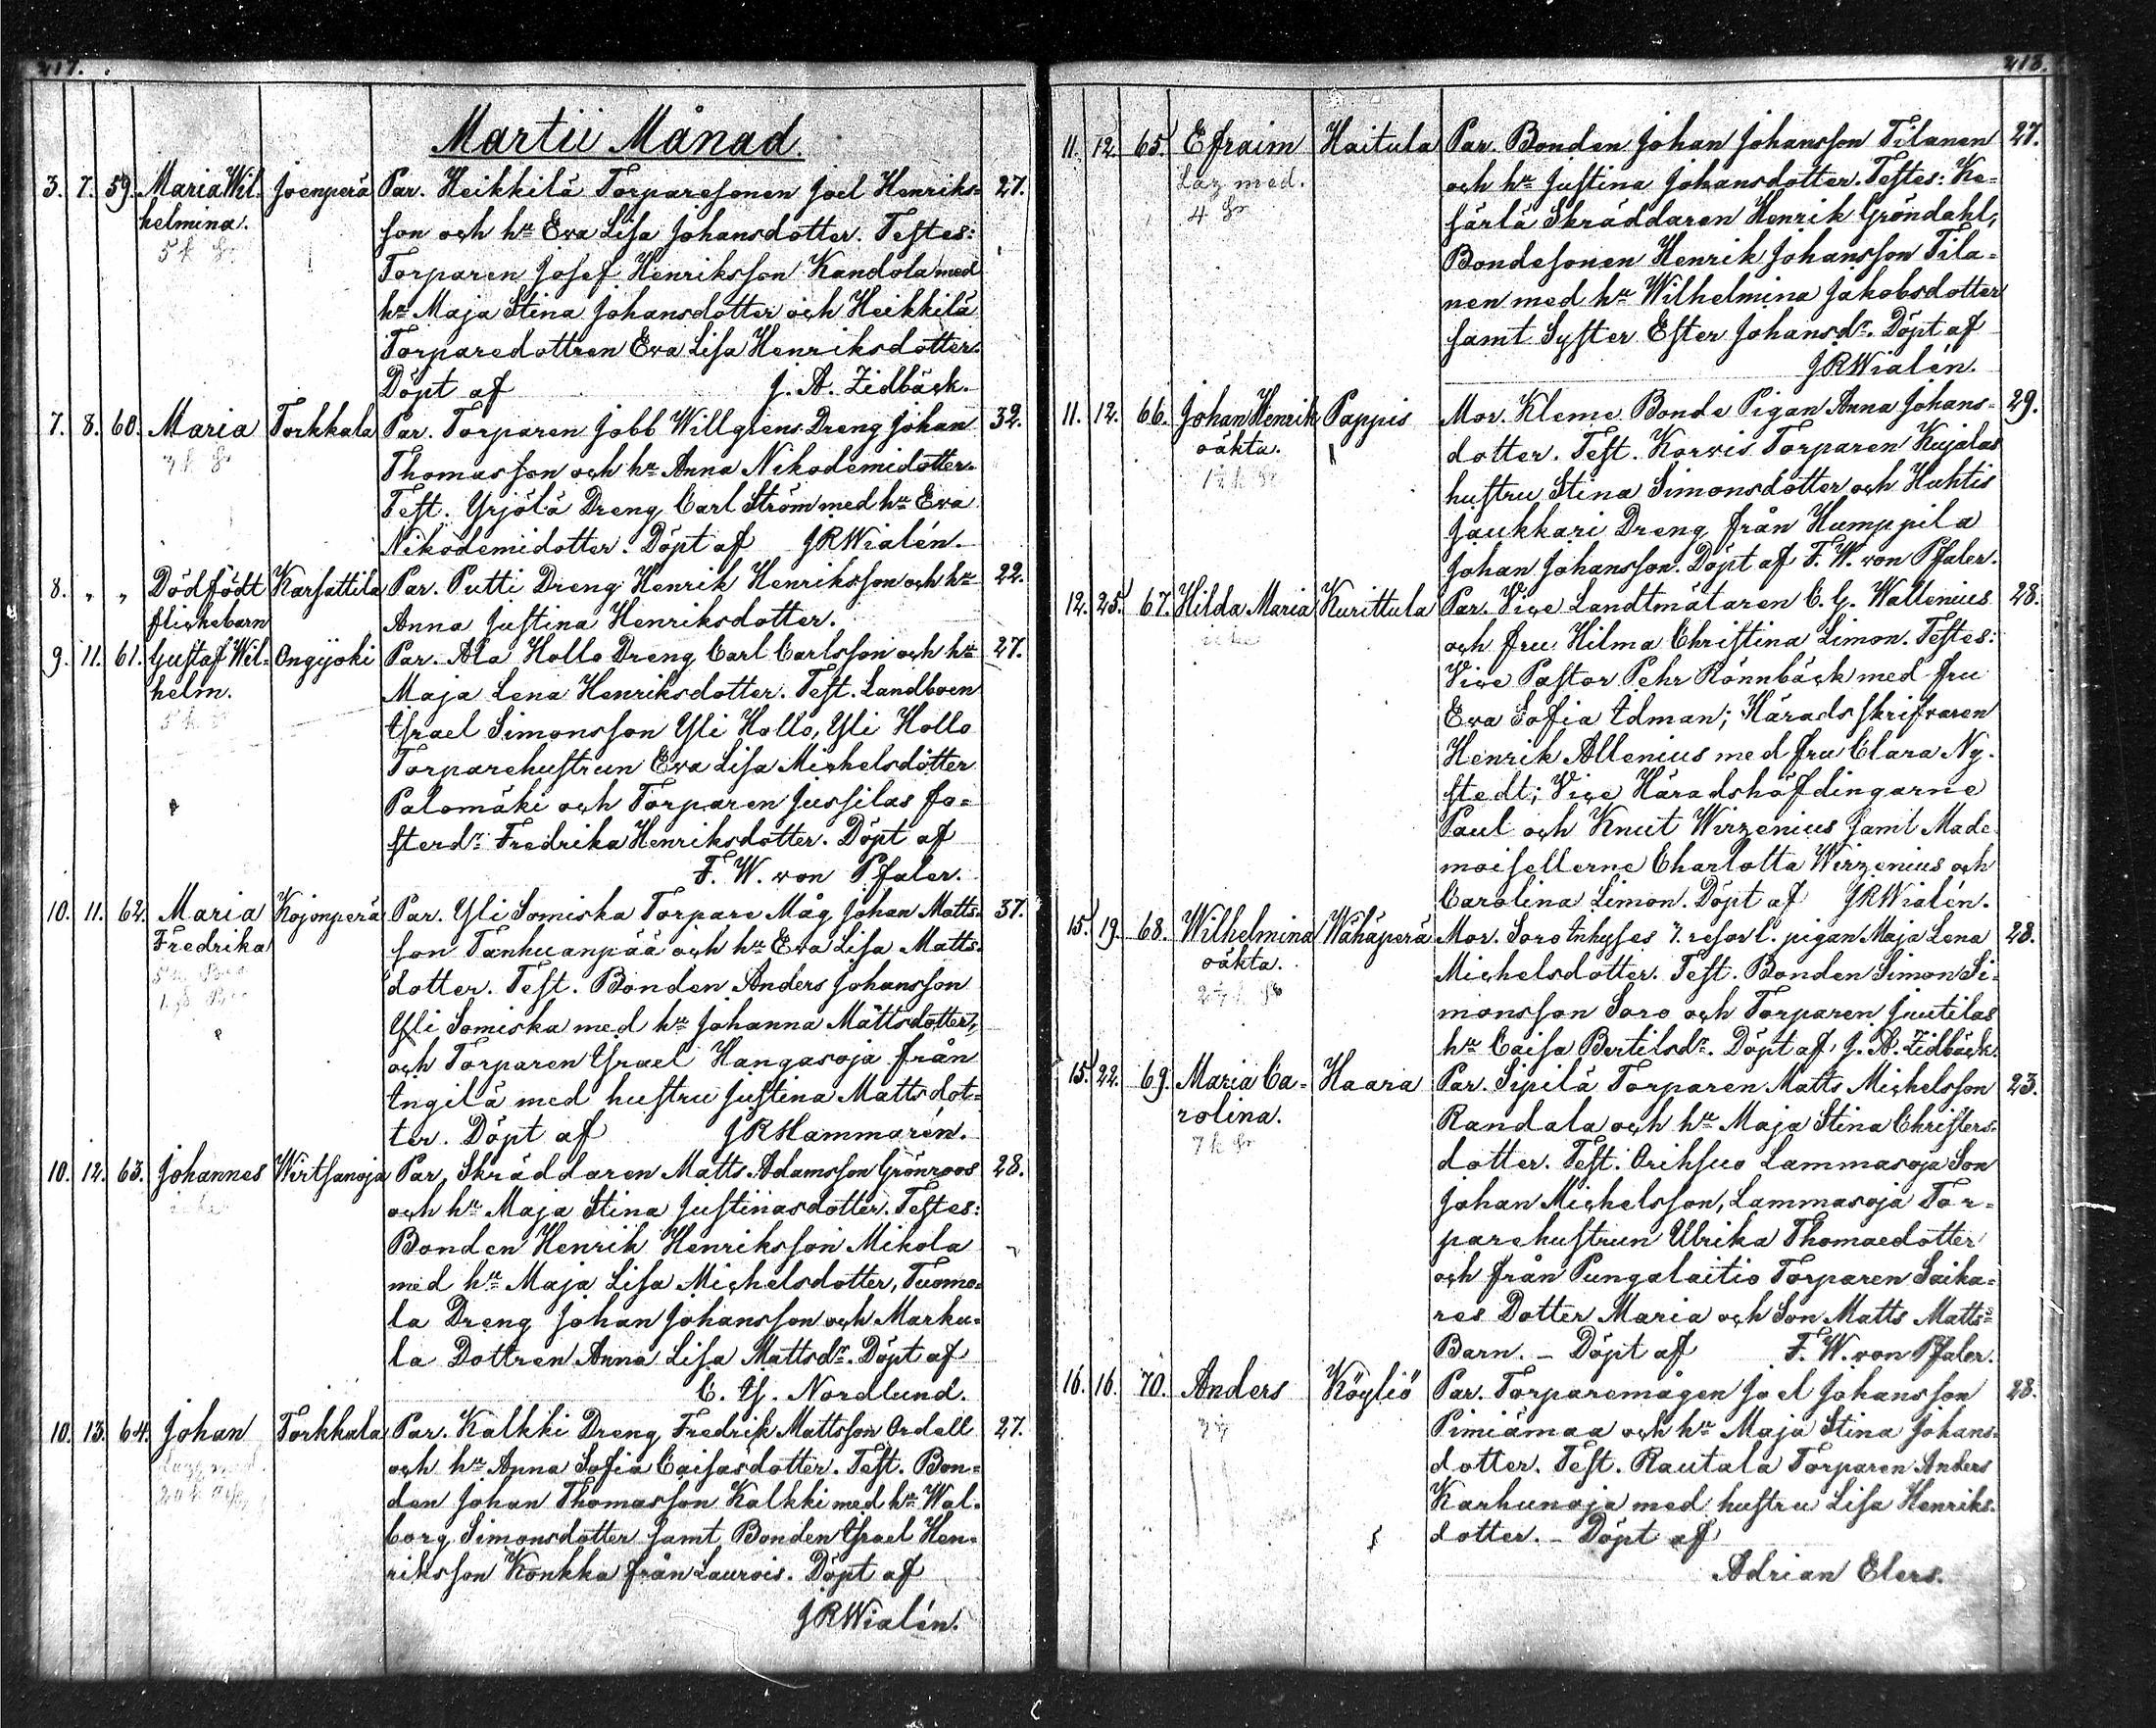 217.
Martii Månad.
3. 7. 59. Maria Wil- Joenperä Par. Heikkilä Torparesonen Joel Henriks- 27.
helmina. son och hu Eva Lisa Johansdotter. Testes:
Torparen Josef Henriksson Kandola med
hu Maja Stina Johansdotter och Heikkilä
Torparedottren Eva Lisa Henriksdotter.
Döpt af J. A. Zidbäck.
7. 8. 60. Maria Torkkala Par. Torparen Jobb Willgrens Dreng Johan 32.
Thomasson och hu Anna Nikodemidotter.
Test. Yrjölä Dreng Carl Ström med hu Eva
Nikodemidotter. Döpt af JRWialén.
8. " " Dödfödt Karsattila Par. Putti Dreng Henrik Henriksson och hu 22.
flickebarn Anna Justina Henriksdotter.
9. 11. 61. Gustaf Wil- Ongijoki Par. Ala Hollo Dreng Carl Carlsson och hu 27.
helm. Maja Lena Henriksdotter. Test. Landboen
Israel Simonsson Yli Hollo, Yli Hollo
Torparehustrun Eva Lisa Michelsdotter
Palomäki och Torparen Jussilas fo-
sterdr Fredrika Henriksdotter. Döpt af
F. W. von Pfaler.
10. 11. 62. Maria Kojonperä Par. Yli Somiska Torpare Måg Johan Matts- 37.
Fredrika son Tanhuanpää och hu Eva Lisa Matts-
dotter. Test. Bonden Anders Johansson
Yli Somiska med hu Johanna Mattsdotter,
och Torparen Israel Hangasoja från
Ingilä med hustru Justina Mattsdot-
ter. Döpt af JRHammarén.
10. 12. 63. Johannes Wirtsanoja Par. Skräddaren Matts Adamsson Grönroos 28.
och hu Maja Stina Justinasdotter. Testes:
Bonden Henrik Henriksson Mikola
med hu Maja Lisa Michelsdotter, Tuomo-
la Dreng Johan Johansson och Marku-
la Dottren Anna Lisa Mattsdr. Döpt af
C. G. Nordlund.
10. 13. 64. Johan Torkkala Par. Kalkki Dreng Fredrik Mattsson Ordell 27.
och hu Anna Sofia Caisasdotter. Test. Bon-
den Johan Thomasson Kalkki med hu Wal-
borg Simonsdotter samt Bonden Israel Hen-
riksson Konkka från Laurois. Döpt af
JRWialén.
218.
11. 12. 65. Efraim Haitula Par. Bonden Johan Johansson Tilanen 27.
och hu Justina Johansdotter. Testes: Ke-
särlä Skräddaren Henrik Gröndahl,
4 Bondesonen Henrik Johansson Tila-
nen med hu Wilhelmina Jakobsdotter
samt Syster Ester Johansdr. Döpt af
JRWialén.
11. 12. 66. Johan Henrik Pappis Mor. Kleme Bonde Pigan Anna Johans- 29.
oäkta. dotter. Test. Korvis Torparen Kujalas
hustru Stina Simonsdotter och Huhtis
Jaukkari Dreng från Humppila
Johan Johansson. Döpt af F. W. von Pfaler.
12. 25. 67. Hilda Maria Kurittula Par. Vice Landtmätaren C. G. Wallenius 28.
och fru Hilma Christina Limon. Testes:
Vice Pastor Pehr Rönnbäck med fru
Eva Sofia Idman; Häradsskrifvaren
Henrik Allenius med fru Clara Ny-
stedt; Vice Häradshöfdingarne
Paul och Knut Wirzenius samt Made-
moisellerne Charlotta Wirzenius och
Carolina Limon. Döpt af JRWialén.
15. 19. 68. Wilhelmina Wähäperä Mor. Soro Inhyses pigan Maja Lena 28.
oäkta. Michelsdotter. Test. Bonden Simon Si-
monsson Soro och Torparen Juutilas
hu Caisa Bertilsdr. Döpt af J. A. Zidbäck.
15. 22. 69. Maria Ca- Haara Par. Sipilä Torparen Matts Michelsson 23.
rolina. Randala och hu Maja Stina Christers-
dotter. Test. Orihsuo Lammasoja Son
Johan Michelsson, Lammasoja Tor-
parehustrun Ulrika Thomaedotter
och från Pungalaitio Torparen Saika-
res Dotter Maria och Son Matts Matts-
Barn. – Döpt af F. W. von Pfaler.
16. 16. 70. Anders Köyliö Par. Torparemågen Joel Johansson 28.
Pimiämaa och hu Maja Stina Johans-
dotter. Test. Rautala Torparen Anders
Karhunoja med hustru Lisa Henriks-
dotter. – Döpt af
Adrian Elers.